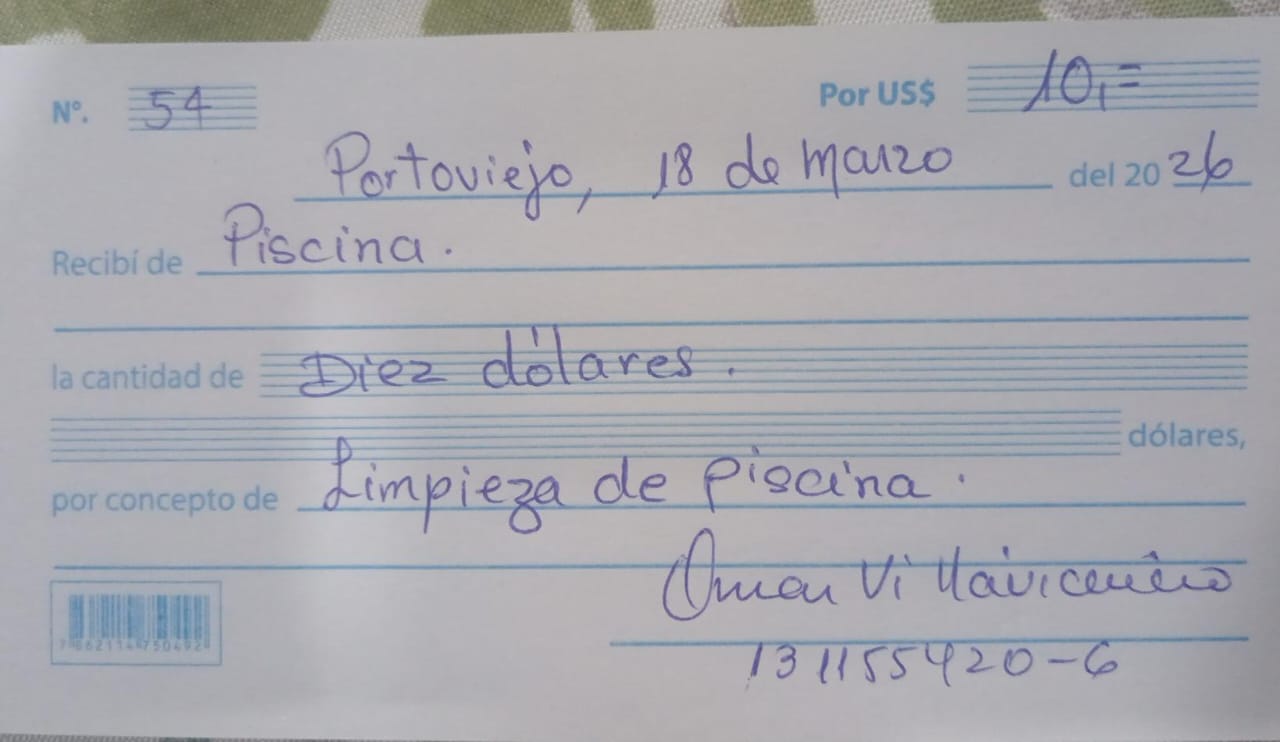 Nº. 54 Por US$ 10,=
Portoviejo, 18 de marzo del 2026
Recibí de Piscina.
la cantidad de Diez dólares.
dólares,
por concepto de Limpieza de piscina.
Omar Villavicencio
131155420-6